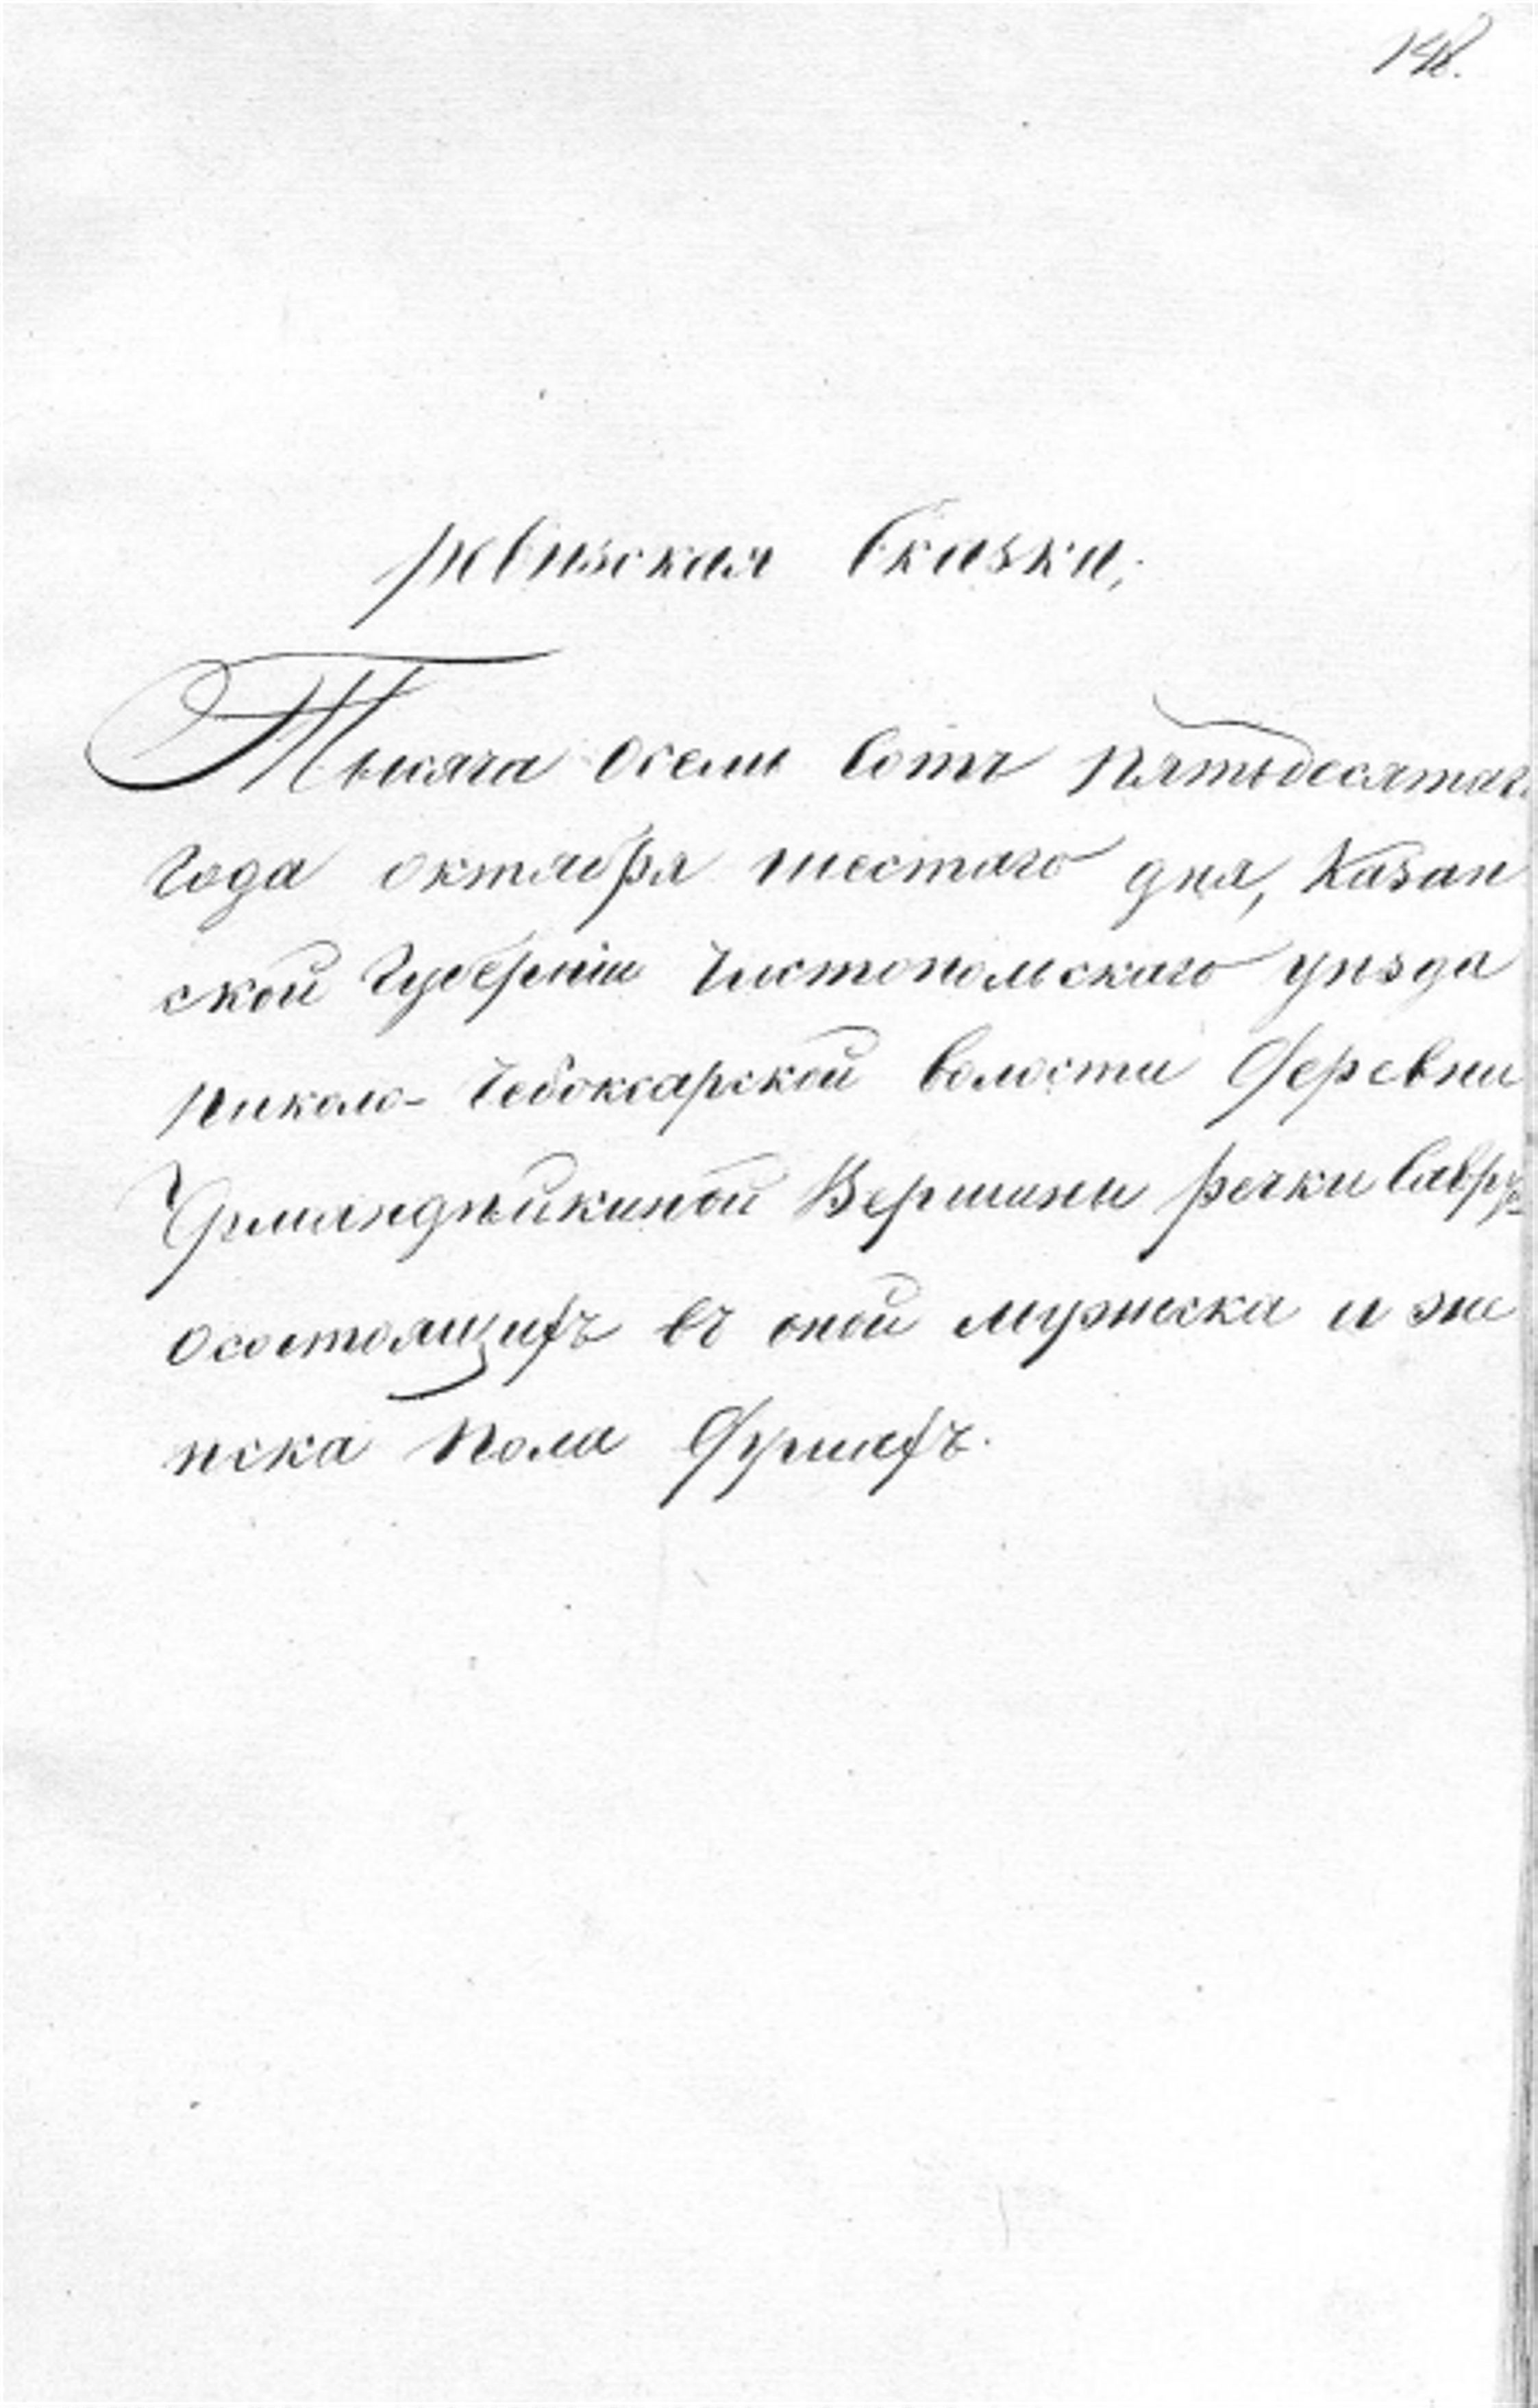 148.
ревизская сказка,
Тысяча осемь сотъ пятьдесятаг
года октября шестаго дня, Казан
ской губерніи Чистопольскаго уѣзда
Николо-Чебоксарской волости деревни
Урмандѣйкиной Вершины речки Савру
о состоящихъ въ оной мужеска и же
нска пола душахъ.